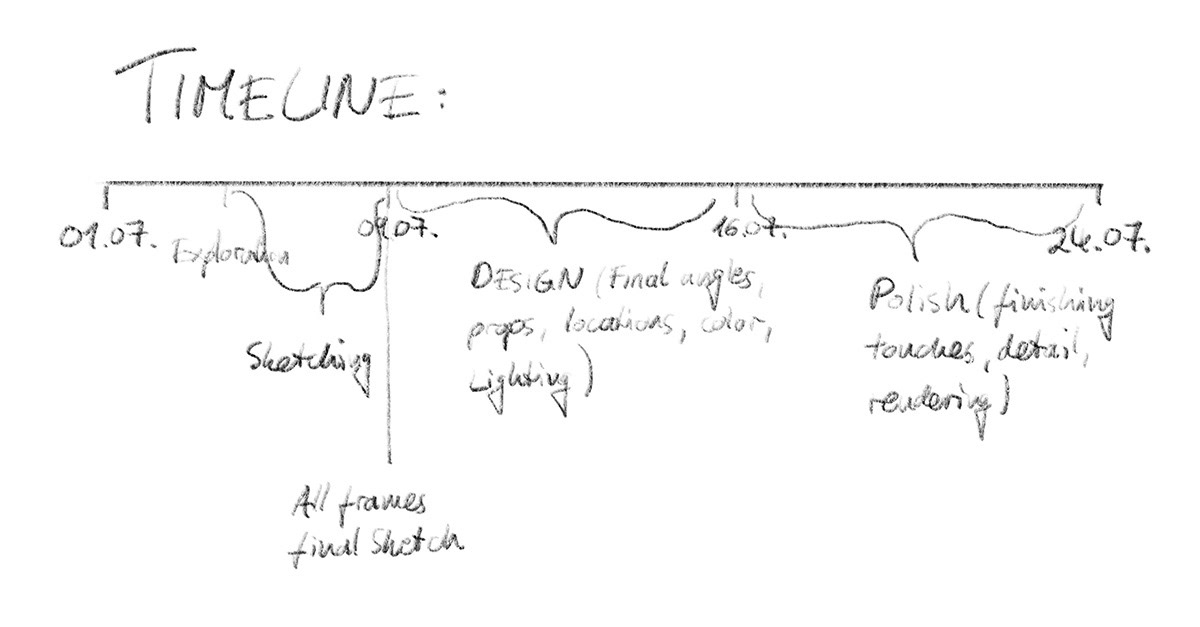 TIMELINE:
01.07.
Exploration
09.07.
16.07.
24.07.
Sketching
DESIGN (Final angles,
props, locations, color,
Lighting)
Polish (finishing
touches, detail,
rendering)
All frames
final Sketch